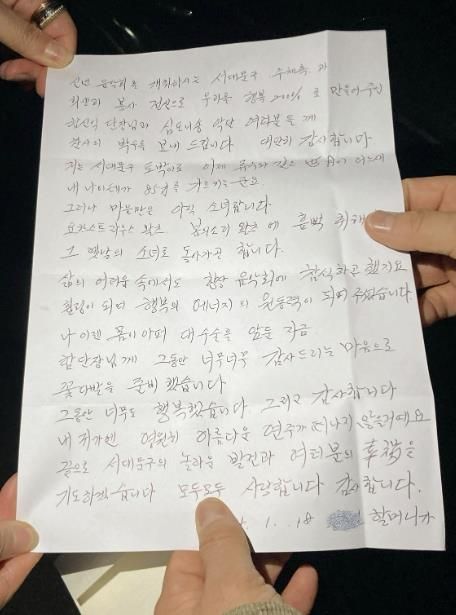 신년 음악회를 개최하시는 서대문구 주최측과
희생과 봉사 정신으로 무라롤 행복 200% 로 만들어주신
함신익 단장님과 심포니송 악단 여러분들께
감사의 박수를 보내 드립니다 대단히 감사합니다
저는 서대문구 토박이로 이제 유수와 같은 세월이 어느새
내 나이테가 을 가르키는군요.
그러나 마음만은 아직 소녀랍니다
요한스트라우스 왈츠 봄의소리 왈츠에 흠뻑 취해
그 옛날의 소녀로 돌아가곤 합니다.
삶의 어려움 속에서도 항상 음악회에 참석하곤 했지요
힐링이 되며 행복의 에너지의 원동력이 되며 주었습니다.
나 이젠 몸이 아퍼 대수술을 앞둔 지금.
함단장님께 그동안 너무너무 감사드리는 마음으로
꽃다발을 준비 했습니다
그동안 너무도 행복했습니다 그리고 감사합니다
내 귀가엔 영원히 아름다운 연주가 떠나지 않을거예요
끝으로 서대문구의 놀라운 발전과 여러분의 幸福을
기도하겠습니다 모두모두 사랑합니다 감사합니다.
1. 18 할머니가